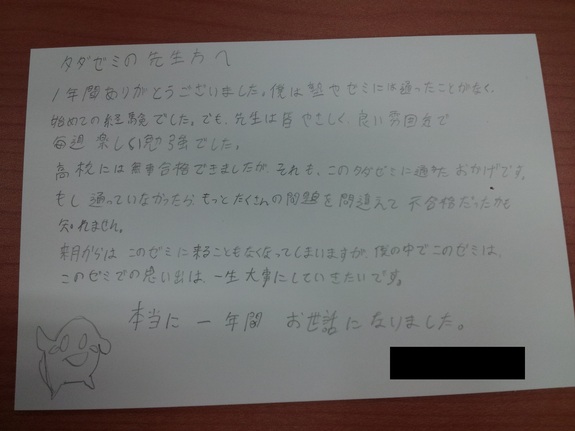 タダゼミの先生方へ
1年間ありがとうございました。僕は塾やゼミには通ったことがなく、
始めての経験でした。でも、先生は皆やさしく、良い雰囲気で
毎週楽しい勉強でした。
高校には無事合格できましたが、それも、このタダゼミに通えたおかげです。
もし通っていなかったら、もっとたくさんの問題を間違えて不合格だったかも
知れません。
来月からは、このゼミに来ることもなくなってしまいますが、僕の中でこのゼミは、
このゼミでの思い出は一生大事にしていきたいです。
本当に一年間 お世話になりました。